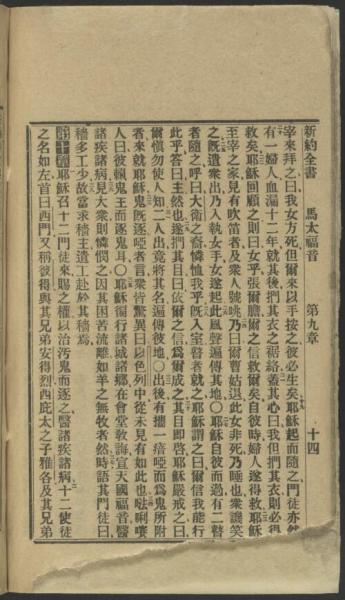 新約全書 馬太福音 第九章 十四
宰來拜之曰我女方死但爾來以手按之彼必生矣耶穌起而隨之門徒亦然
有一婦人血漏十二年就其後捫其衣之裾緒蓋其心曰我但捫其衣則必得
救矣耶穌回顧之則曰女乎張爾膽爾之信救爾矣自彼時婦人遂得救耶穌
至宰之家見有吹笛者及衆人號咷乃曰爾曹姑退此女非死乃睡也衆譏笑
之旣遣衆出乃入執女手女遂起此風聲遍傳其地○耶穌自彼而過有二瞽
者隨之呼曰大衛之裔憐恤我乎旣入室瞽者就之耶穌謂之曰爾信我能行
此乎答曰主然也遂捫其目曰依爾之信爲爾成之其目卽啓耶穌嚴戒之曰
爾愼勿使人知二人出竟將其名遍傳彼地○出後有攜一瘖啞而爲鬼所附
者來就耶穌鬼旣逐啞者言衆皆驚異曰以色列中從未見有如此也𠵽唎㘔
人曰彼賴鬼王而逐鬼耳○耶穌徧行諸城諸鄉在會堂敎誨宣天國福音醫
諸疾諸病見大衆則憐憫之因其困苦流離如羊之無牧者然時語其門徒曰
穡多工少故當求穡主遣工赴於其穡焉
第十章 耶穌召十二門徒來賜之權以治汚鬼而逐之醫諸疾諸病十二使徒
之名如左首曰西門又稱彼得與其兄弟安得烈西庇太之子雅各及其兄弟